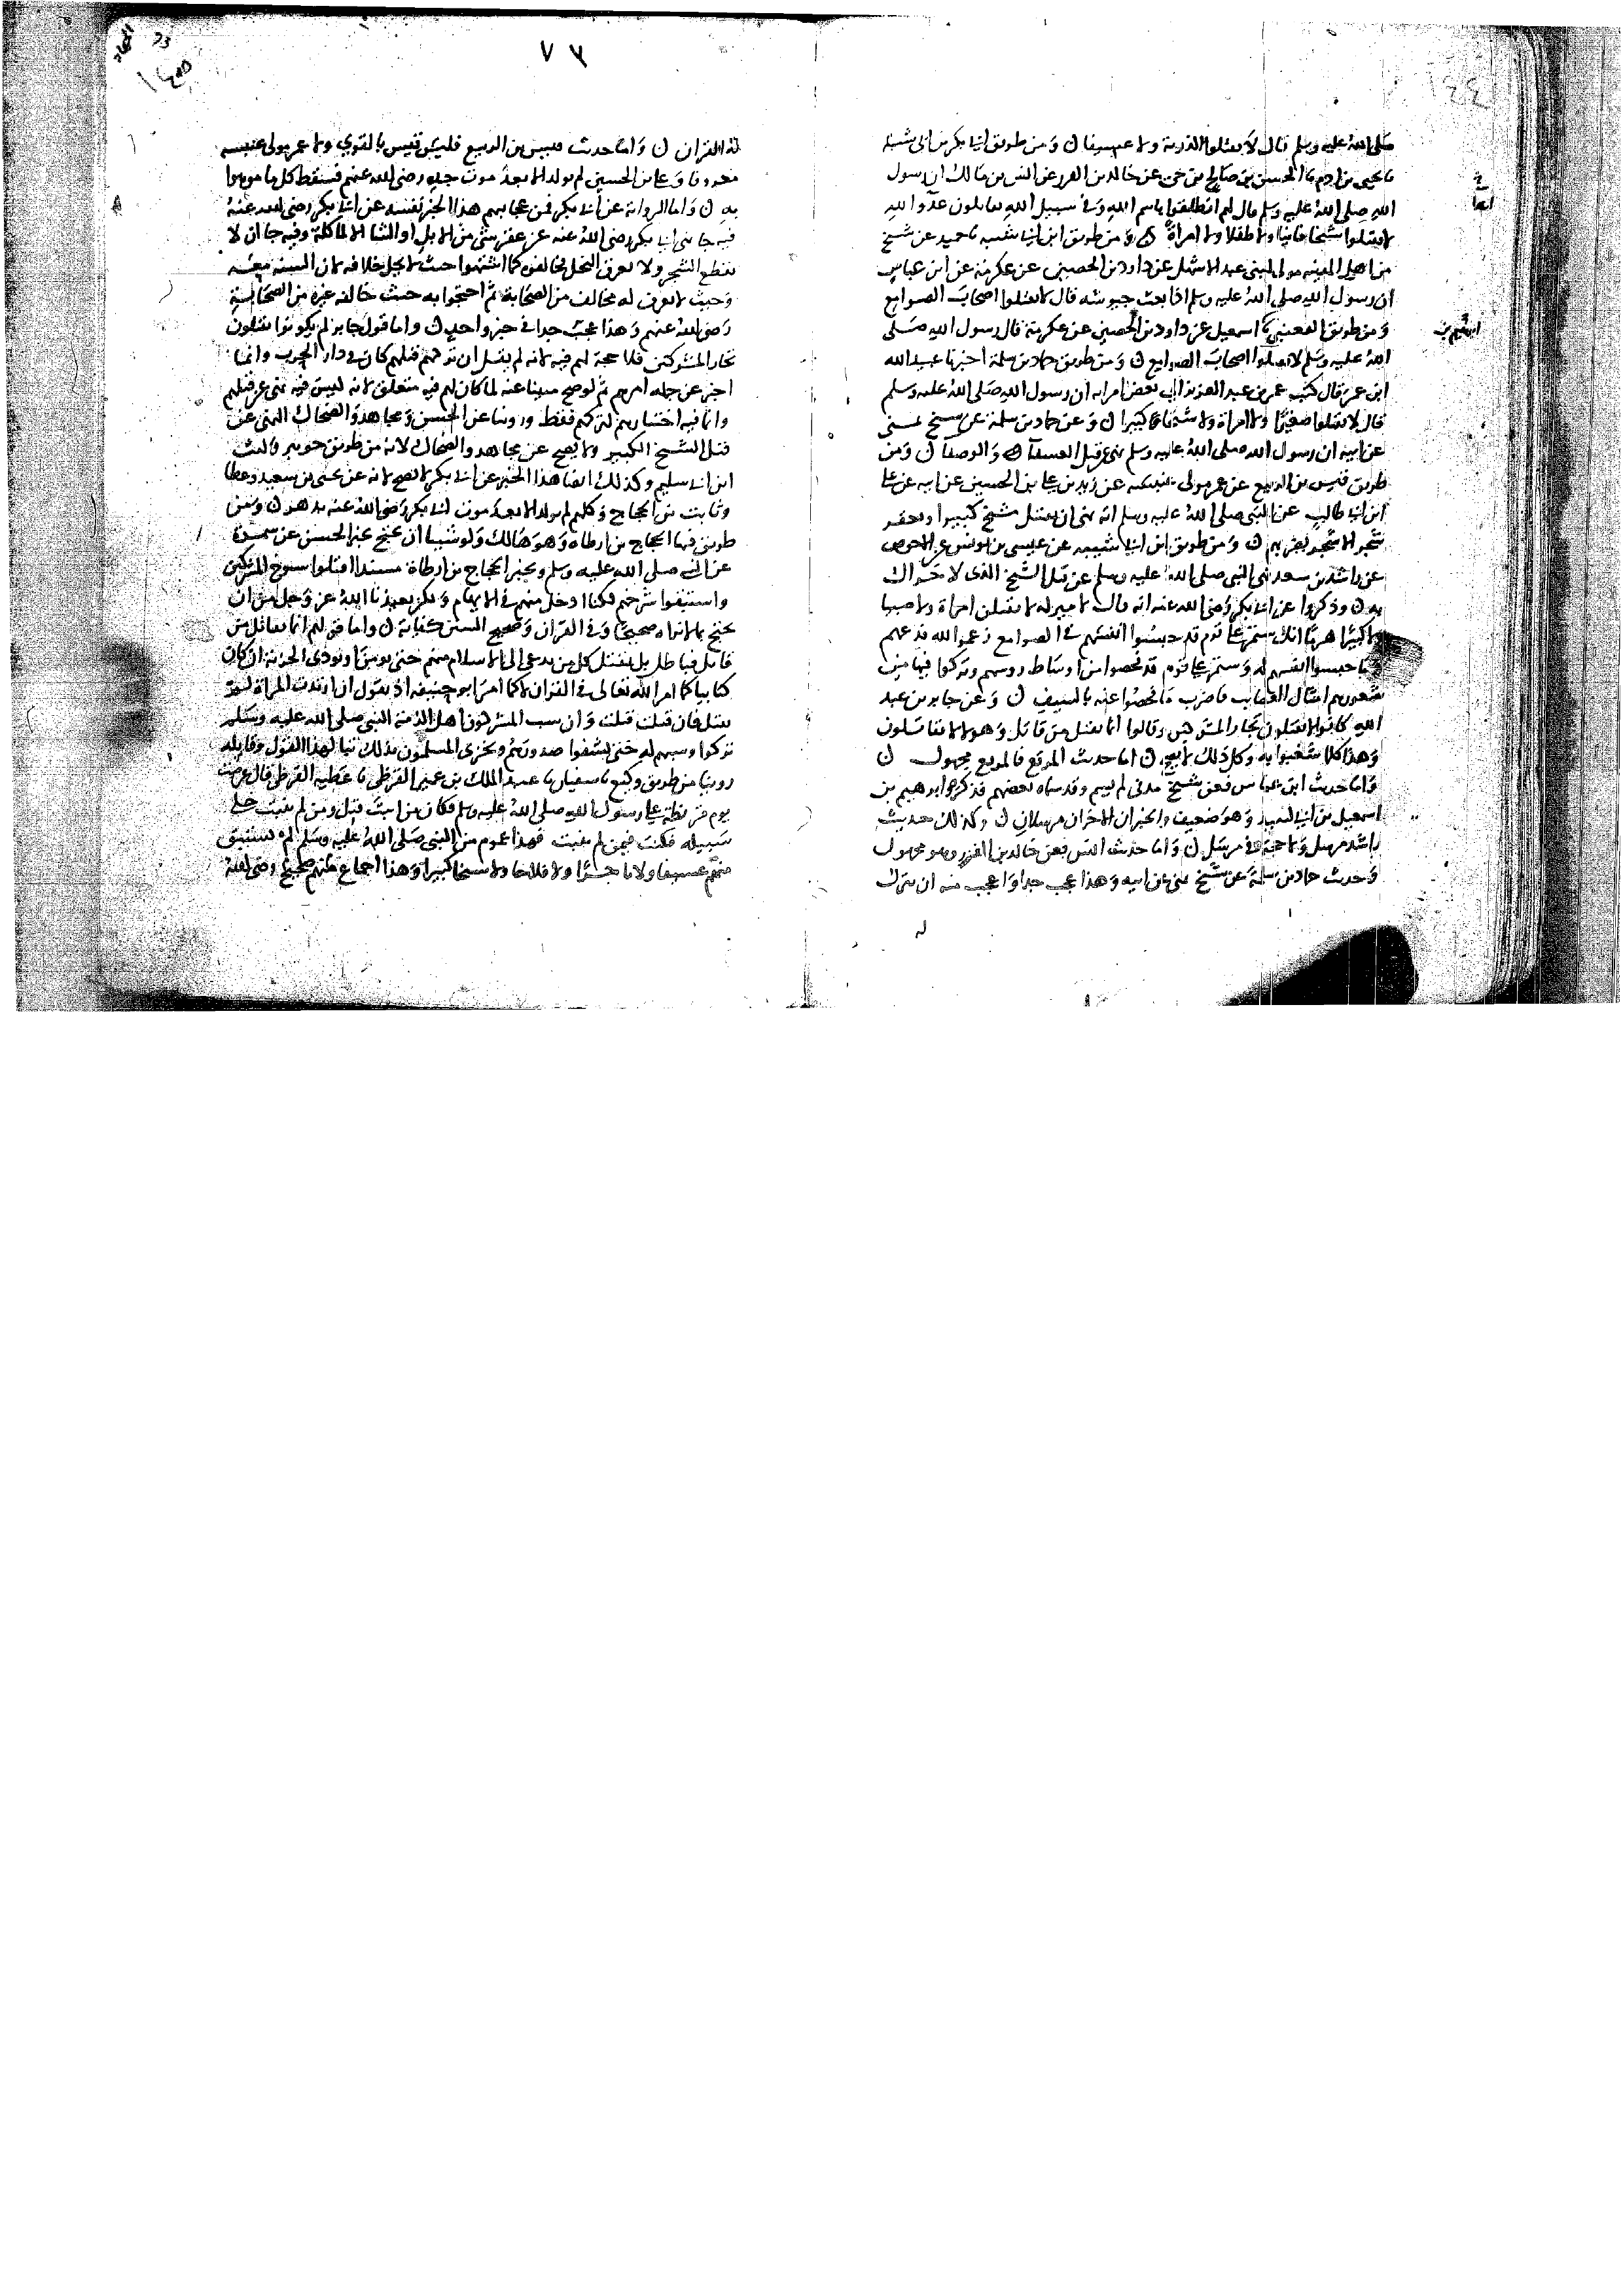 صلى الله عليه وسلم قال لا تقتلوا الذرية ولا عسيفا ن ومن طريق ابي بكر بن ابي شيبة
نا يحيى بن ادم نا الحسن بن صالح بن حي عن خالد بن الفرر عن انس بن مالك ان رسول
الله صلى الله عليه وسلم قال لهم انطلقوا باسم الله وفي سبيل الله تقاتلون عدو الله
لا تقتلوا شيخا فانيا ولا طفلا ولا امراة ن ومن طريق ابن ابي شيبه نا حميد عن شيخ
من اهل المدينه مولى لبني عبد الاشهل عن داود بن الحصين عن عكرمة عن ابن عباس
ان رسول الله صلى الله عليه وسلم اذا بعث جيوشه قال لا تقتلوا اصحاب الصوامع
ومن طريق القعنبي نا اسمعيل عن داود بن الحصين عن عكرمة قال رسول الله صلى
الله عليه وسلم لا تقتلوا اصحاب الصوامع ن ومن طريق حماد بن سلمة اخبرنا عبيد الله
ابن عمر قال كتب عمر بن عبد العزيز الى بعض امرايه ان رسول الله صلى الله عليه وسلم
قال لا تقتلوا صغيرا ولا امراة ولا شيخا كبيرا ن وعن حماد بن سلمة عن شيخ بمنى
عن ابيه ان رسول الله صلى الله عليه وسلم نهى عن قتل العسفا والوصفا ن ومن
طريق قيس بن الربيع عن عمر مولى عنبسه عن زيد بن علي بن الحسين عن ابيه عن علي
ابن ابي طالب عن النبي صلى الله عليه وسلم انه نهى ان يقتل شيخ كبير او يعقر
شجر الا شجر يضر بهم ن ومن طريق ابن ابي شيبه عن عيسى بن يونس عن الاحوص
عن راشد بن سعد نهى النبي صلى الله عليه وسلم عن قتل الشيخ الذي لا حراك
به ن وذكروا عن ابي بكر رضي الله عنه انه قال لامير له لا تقتلن امراة ولا صبيا
ولا كبيرا هرما انك ستمر على قوم قد حبسوا انفسهم في الصوامع زعموا لله فدعهم
وما حبسوا انفسهم له وستمر على قوم قد فحصوا من اوساط روسهم وتركوا فيها من
شعورهم امثال العصايب فاضرب ما فحصوا عنه بالسيف ن وعن جابر بن عبد
الله كانوا لا يقتلون تجار المشركين وقالوا انما نقتل من قاتل وهولا لا يقاتلون
وهذا كلما شغبوا به وكل ذلك لا يصح ن اما حديث المرقع فالمرقع مجهول ن
واما حديث ابن عباس فعن شيخ مدني لم يسم وقد سماه بعضهم فذكر ابرهيم بن
اسمعيل بن ابي حبيبه وهو ضعيف والخبران الاخران مرسلان ن وكذلك حديث
راشد مرسل ولا حجة في مرسل ن واما حديث انس فعن خالد بن الفرر وهو مجهول
وحديث حماد بن سلمة عن شيخ بمنى عن ابيه وهذا عجب جدا واعجب منه ان يترك
له
ايضا
ابرهيم بن
٧٣
الجهاد
له القران ن واما حديث قيس بن الربيع فليس قيس بالقوي ولا عمر مولى عنبسه
معروفا وعلي بن الحسين لم يولد الا بعد موت جده رضي الله عنهم فسقط كل ما موهوا
به ن واما الرواية عن ابي بكر فمن عجايبهم هذا الخبر نفسه عن ابي بكر رضي الله عنه
فيه جا نهي ابي بكر رضي الله عنه عن عقر شي من الابل او الشا الا لماكلة وفيه جا ان لا
يقطع الشجر ولا يغرق النحل فخالفوه كما اشتهوا حيث لا يحل خلافه لان السنه معه
وحيث لا يعرف له مخالف من الصحابة ثم احتجوا به حيث خالفه غيره من الصحابة
رضي الله عنهم وهذا عجب جدا في خبر واحد ن واما قول جابر لم يكونوا يقتلون
تجار المشركين فلا حجة لهم فيه لانه لم يقل ان تركهم قتلهم كان في دار الحرب وانما
اخبر عن جملة امرهم ثم لو صح مبينا عنه لما كان لهم فيه متعلق لانه ليس فيه نهي عن قتلهم
وانما فيه اختيارهم لتركهم فقط وروينا عن الحسن ومجاهد والضحاك النهي عن
قتل الشيخ الكبير ولا يصح عن مجاهد والضحاك لانه من طريق جويبر وليث
ابن ابي سليم وكذلك ايضا هذا الخبر عن ابي بكر لا يصح لانه عن يحيى بن سعيد وعطا
وثابت بن الحجاج وكلهم لم يولد الا بعد موت ابي بكر رضي الله عنه بدهر ن ومن
طريق فيها الحجاج بن ارطاة وهو هالك ولو شينا ان نحتج بخبر الحسن عن سمرة
عن النبي صلى الله عليه وسلم وبخبر الحجاج بن ارطاة مسندا اقتلوا شيوخ المشركين
واستبقوا شرخهم لكنا ادخل منهم في الايهام ولكن يعيذنا الله عز وجل من ان
نحتج بما لا نراه صحيحا وفي القران وصحيح السنن كفاية ن واما قولهم انما نقاتل من
قاتل فباطل بل نقتل كل من يدعى الى الاسلام منهم حتى يومن او يودي الجزية ان كان
كتابيا كما امر الله تعالى في القران لا كما امر ابو حنيفه اذ يقول ان ارتدت المراة لم
تقتل فان قتلت قتلت وان سب المشركون اهل الذمة النبي صلى الله عليه وسلم
تركوا وسبهم له حتى يشفوا صدورهم ويخزى المسلمون بذلك تبا لهذا القول وقايله
روينا من طريق وكيع نا سفيان نا عبد الملك بن عمير القرظي نا عطيه القرظي قال عرضت
يوم قريظة على رسول الله صلى الله عليه وسلم فكان من انبت قتل ومن لم ينبت خلي
سبيله فكنت فيمن لم ينبت فهذا عموم من النبي صلى الله عليه وسلم لم يستبق
منهم عسيفا ولا تاجرا ولا فلاحا ولا شيخا كبيرا وهذا اجماع منهم صحيح رضي الله